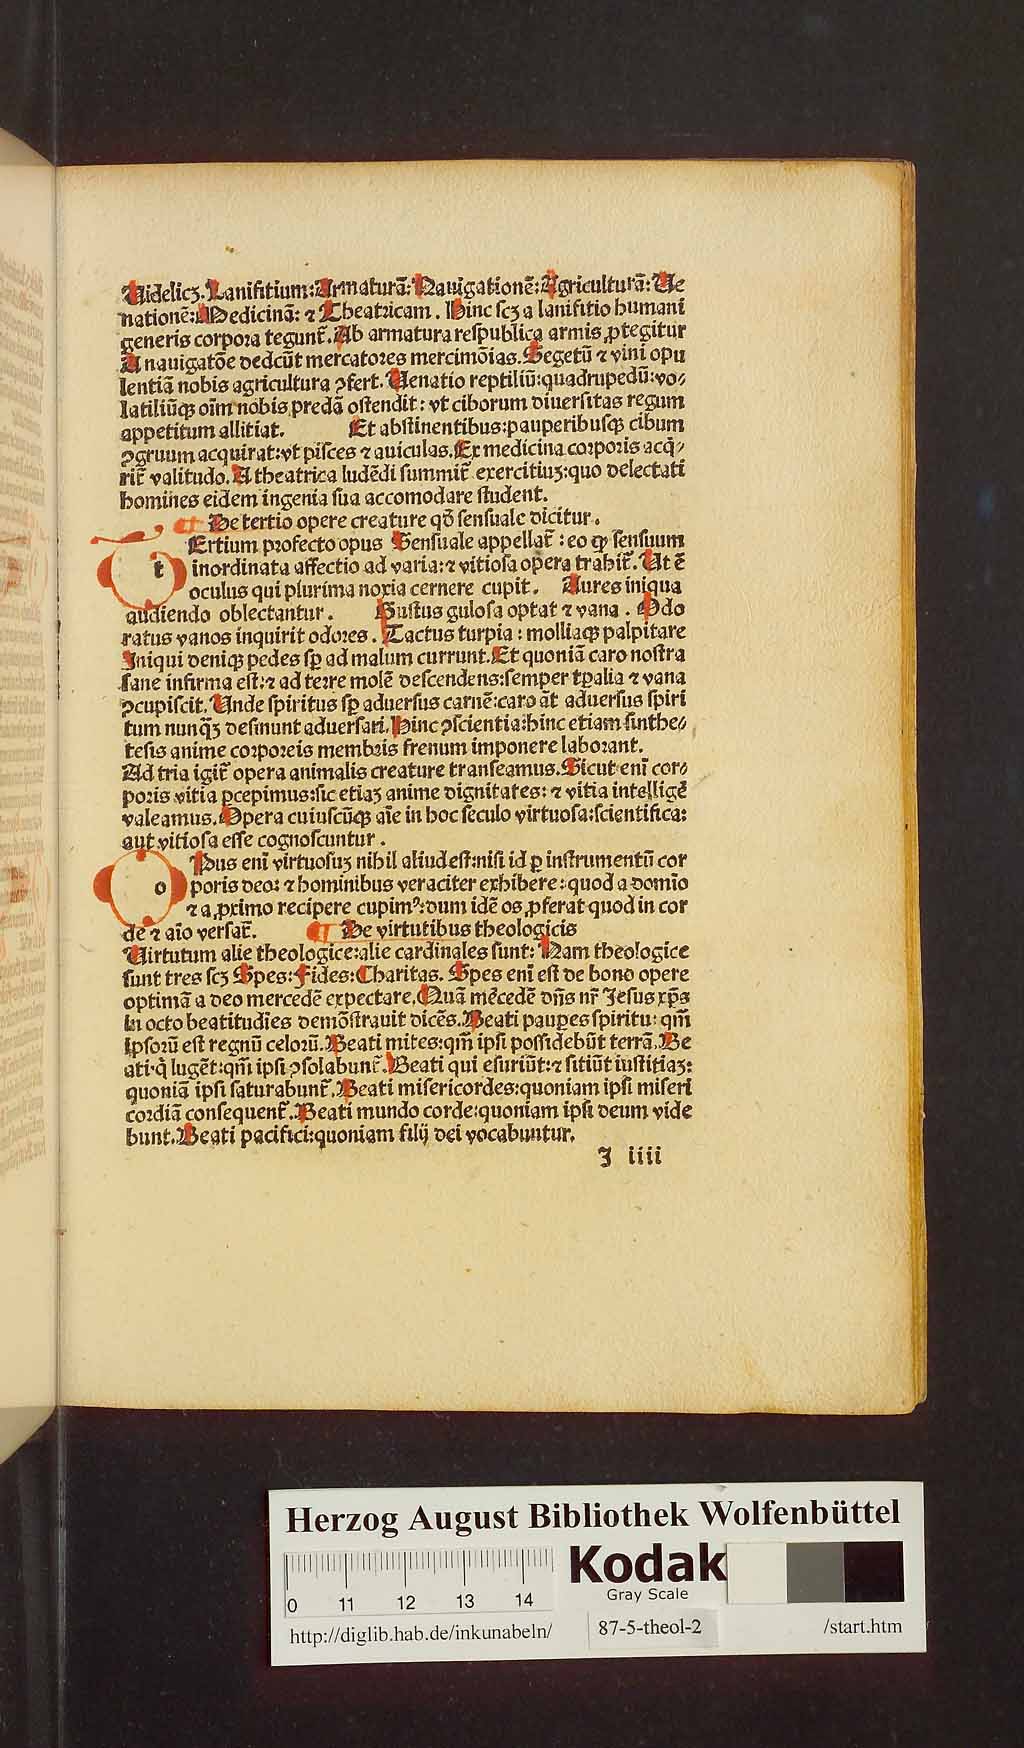 Uidelicꝫ. Lanifitium: Armaturā: Nauigationē: Agriculturā: Ue
nationē: Medicinā: ⁊ Theatricam. Hinc ſcꝫ a lanifitio humani
generis corpora tegunt̃. Ab armatura reſpublica armis ꝓtegitur
A nauigatōe dedcūt mercatores mercimōias. Segetū ⁊ vini opu
lentiā nobis agricultura ꝯfert. Uenatio reptiliū: quadrupedū: vo⸗
latiliūqꝫ oīm nobis predā oſtendit: vt ciborum diuerſitas regum
appetitum allitiat. Et abſtinentibus: pauperibuſqꝫ cibum
ꝯgruum acquirat: vt piſces ⁊ auiculas. Ex medicina corporis acq̄⸗
rit̃ valitudo. A theatrica ludēdi ſummit̃ exercitiuꝫ: quo delectati
homines eidem ingenia ſua accomodare ſtudent.
¶ De tertio opere creature qð ſenſuale dicitur.
t Ertium profecto opus Senſuale appellat̃: eo ꝙ ſenſuum
inordinata affectio ad varia: ⁊ vitioſa opera trahit̃. Ut ē
oculus qui plurima noxia cernere cupit. Aures iniqua
audiendo oblectantur. Guſtus guloſa optat ⁊ vana. Odo
ratus vanos inquirit odores. Tactus turpia: molliaqꝫ palpitare
Iniqui deniqꝫ pedes ſꝑ ad malum currunt. Et quoniā caro noſtra
ſane infirma eſt: ⁊ ad terre molē deſcendens: ſemper tꝑalia ⁊ vana
ꝯcupiſcit. Unde ſpiritus ſꝑ aduerſus carnē: caro āt aduerſus ſpiri
tum nunq̄ꝫ deſinunt aduerſari. Hinc ꝯſcientia: hinc etiam ſinthe⸗
teſis anime corporeis membris frenum imponere laborant.
Ad tria igit̃ opera animalis creature tranſeamus. Sicut enī cor⸗
poris vitia ꝑcepimus: ſic etiaꝫ anime dignitates: ⁊ vitia intelligē
valeamus. Opera cuiuſcūqꝫ aīe in hoc ſeculo virtuoſa: ſcientifica:
aut vitioſa eſſe cognoſcuntur.
o Pus enī virtuoſuꝫ nihil aliud eſt: niſi id ꝑ inſtrumentū cor
poris deo: ⁊ hominibus veraciter exhibere: quod a domīo
⁊ a ꝓximo recipere cupimꝰ: dum idē os ꝓferat quod in cor
de ⁊ aīo verſat̃. ¶ De virtutibus theologicis
Uirtutum alie theologice: alie cardinales ſunt: Nam theologice
ſunt tres ſcꝫ Spes: Fides: Charitas. Spes enī eſt de bono opere
optimā a deo mercedē expectare. Quā mēcedē dñs nr̃ Jeſus xp̃s
in octo beatitudīes demōſtrauit dicēs. Beati paupes ſpiritu: qm̃
ipſorū eſt regnū celorū. Beati mites: qm̃ ipſi poſſidebūt terrā. Be
ati q̇ lugēt: qm̃ ipſi ꝯſolabunt̃. Beati qui eſuriūt: ⁊ ſitiūt iuſtitiaꝫ:
quoniā ipſi ſaturabunt̃. Beati miſericordes: quoniam ipſi miſeri
cordiā conſequent̃. Beati mundo corde: quoniam ipſi deum vide
bunt. Beati pacifici: quoniam filij dei vocabuntur.
J iiii
Herzog August Bibliothek Wolfenbüttel
Kodak
Gray Scale
0 11 12 13 14
http://diglib.hab.de/inkunabeln/ 87-5-theol-2 /start.htm